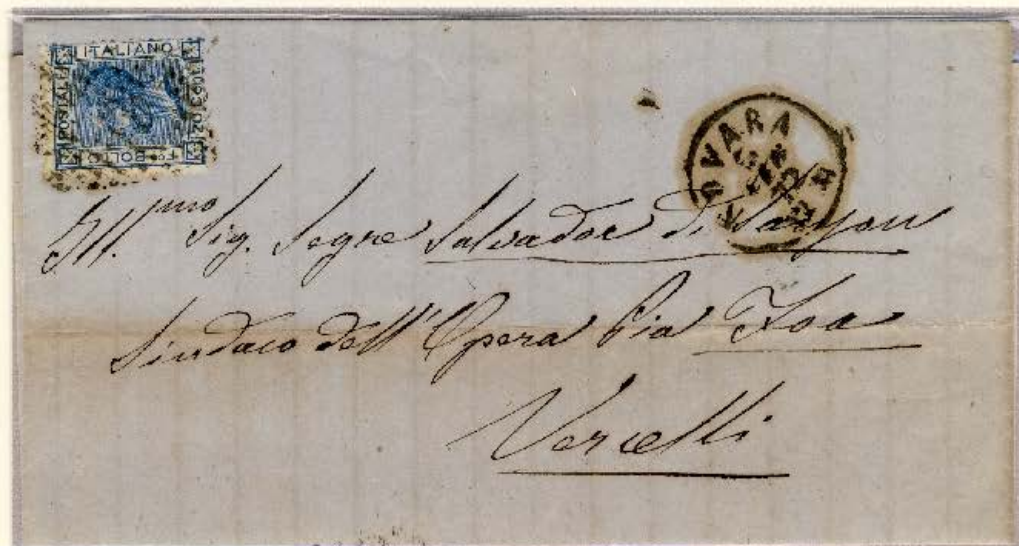 ITALIANO
POSTALE
20 CENT
FCO BOLLO
NOVARA
Ill.mo Sig. Segre Salvador di Sanson
Sindaco dell'Opera Pia Foa
Vercelli